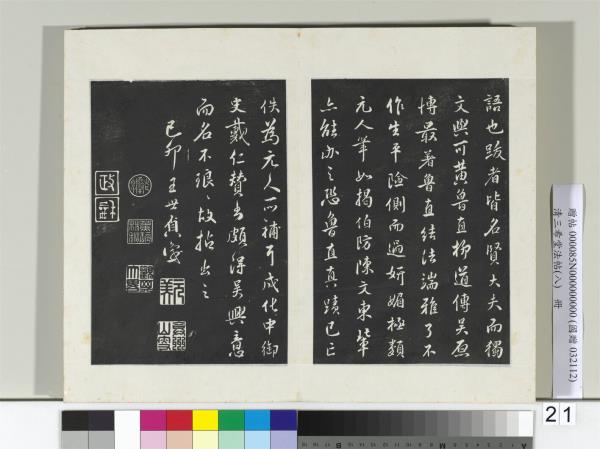 語也跋者皆名賢大夫而獨
文與可黃魯直柳道傳吳原
博最著魯直結法端雅了不
作生平險側而過妍媚極類
元人筆如揭伯防陳文東輩
亦能辦之恐魯直真蹟已亡
佚為元人所補耳成化中御
史戴仁贊書頗得吳興意
而名不琅琅故拈出之
己卯王世貞
贈帖 000085N000000000 (國贈 032112)
清三希堂法帖(八) 冊
21